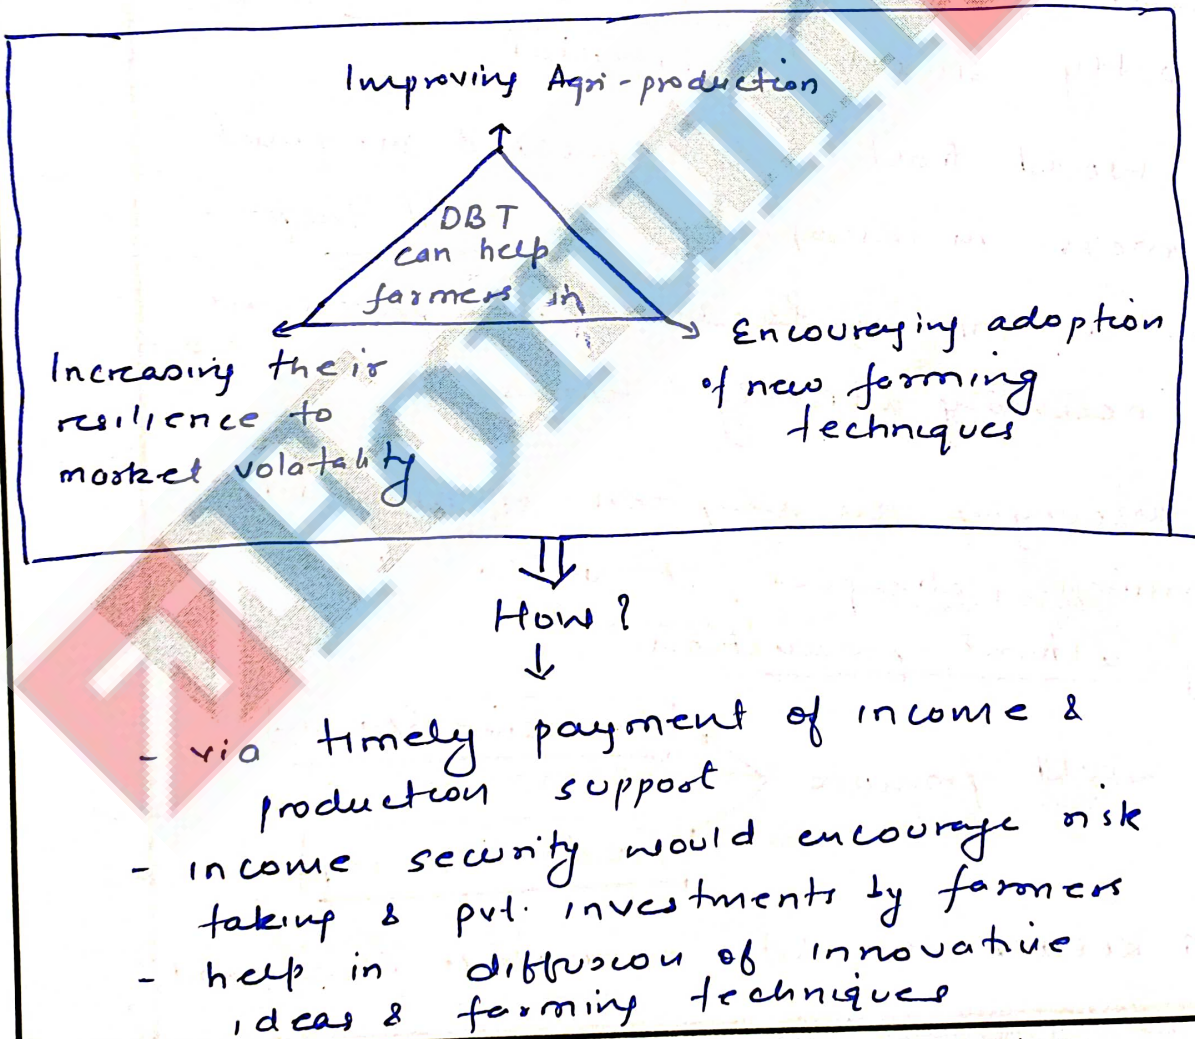 Improving Agri-production
DBT
can help
farmers in
Increasing their
resilience to
market volatality
Encouraging adoption
of new farming
techniques
How?
- via timely payment of income &
production support
- income security would encourage risk
taking & pvt. investments by farmers
- help in diffusion of innovative
ideas & farming techniques
7 Forum